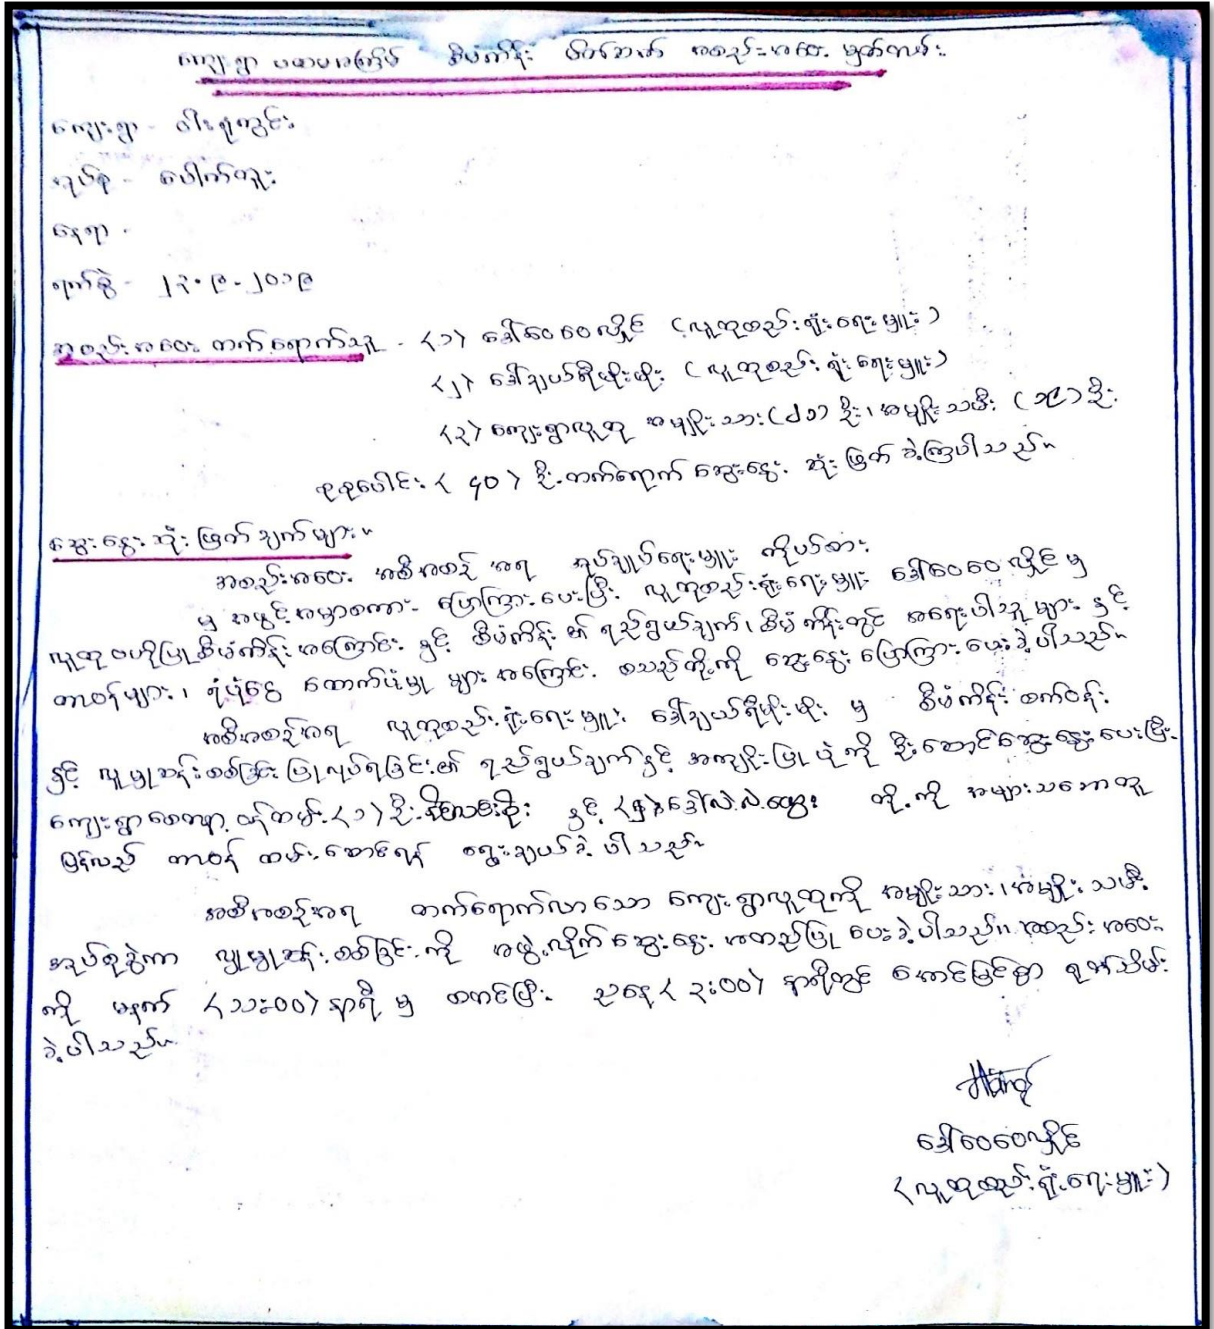 ကျေးရွာ ပထမအကြိမ် စီမံကိန်း မိတ်ဆက် အစည်းအဝေး မှတ်တမ်း
ကျေးရွာ - ဝါးရုံကွင်း
အုပ်စု - ပေါက်တူး
နေရာ -
ရက်စွဲ - ၂၃.၉.၂၀၁၉
အစည်းအဝေး တက်ရောက်သူ - (၁) ဒေါ်ဝေဝေလှိုင် (လူထုစည်းရုံးရေးမှူး)
(၂) ဒေါ်ချယ်ရီမိုးမိုး (လူထုစည်းရုံးရေးမှူး)
(၃) ကျေးရွာလူထု အမျိုးသား (၂၁) ဦး၊ အမျိုးသမီး (၁၉) ဦး
စုစုပေါင်း (၄၀) ဦး တက်ရောက် ဆွေးနွေး ဆုံးဖြတ် ခဲ့ကြပါသည်။
ဆွေးနွေး ဆုံးဖြတ်ချက်များ။
အစည်းအဝေး အစီအစဉ် အရ အုပ်ချုပ်ရေးမှူး ကိုယ်စား
မှ အဖွင့်အမှာစကား ပြောကြားပေးပြီး လူထုစည်းရုံးရေးမှူး ဒေါ်ဝေဝေလှိုင် မှ
လူထုဗဟိုပြုစီမံကိန်း အကြောင်း နှင့် စီမံကိန်း၏ ရည်ရွယ်ချက်၊ စီမံကိန်းတွင် အရေးပါသူများ နှင့်
တာဝန်များ၊ ရံပုံငွေ ထောက်ပံ့မှု များ အကြောင်း စသည်တို့ကို ဆွေးနွေး ပြောကြားပေးခဲ့ပါသည်။
အစီအစဉ်အရ လူထုစည်းရုံးရေးမှူး ဒေါ်ချယ်ရီမိုးမိုး မှ စီမံကိန်း စက်ဝန်း
နှင့် လူမှုဆန်းစစ်ခြင်း ပြုလုပ်ရခြင်း၏ ရည်ရွယ်ချက်နှင့် အကျိုးပြုပုံကို ဦးဆောင်ဆွေးနွေးပေးပြီး
ကျေးရွာစေတနာ့ ဝန်ထမ်း (၁) ဦး နှင့် (၂) ဒေါ်လဲ့လဲ့ထွေး တို့ကို အများသဘောတူ
မြန်လည် တာဝန် ထမ်းဆောင်ရန် ရွေးချယ်ခဲ့ ပါသည်။
အစီအစဉ်အရ တက်ရောက်လာသော ကျေးရွာလူထုကို အမျိုးသား၊ အမျိုးသမီး
အုပ်စုခွဲကာ လူမှုဆန်းစစ်ခြင်းကို အဖွဲ့လိုက် ဆွေးနွေး အတည်ပြု ပေးခဲ့ပါသည်။ အစည်းအဝေး
ကို မနက် (၁၁:၀၀) နာရီ မှ စတင်ပြီး ညနေ (၃:၀၀) နာရီတွင် အောင်မြင်စွာ ရုပ်သိမ်း
ခဲ့ပါသည်။
ဒေါ်ဝေဝေလှိုင်
(လူထုစည်းရုံးရေးမှူး)